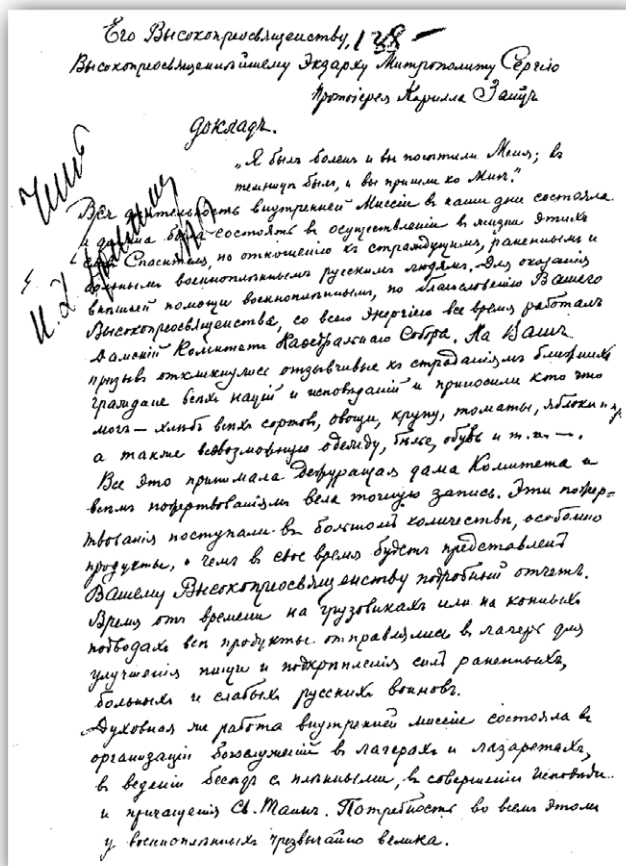 Его Высокопреосвященству, 138 –
Высокопреосвященнѣйшему Экзарху Митрополиту Сергію
Протоіерея Кирилла Зайцъ
Докладъ.
„Я былъ боленъ и вы посѣтили Меня; въ
темницѣ былъ, и вы пришли ко Мнѣ."
Вся дѣятельность внутренней Миссіи въ наши дни состояла
и должна была состоять въ осуществленіи въ жизни этихъ
словъ Спасителя, по отношенію къ страждущимъ, раненнымъ и
больнымъ военноплѣннымъ русскимъ людямъ. Для оказанія
внѣшней помощи военноплѣннымъ, по благословенію Вашего
Высокопреосвященства, со всею энергіею все время работалъ
Дамскій Комитетъ Каѳедральнаго Собора. На Вашъ
призывъ откликнулись отзывчивые къ страданіямъ ближнихъ
граждане всѣхъ націй и исповѣданій и приносили кто что
могъ — хлѣбъ всѣхъ сортовъ, овощи, крупу, томаты, яблоки и пр.
а также всевозможную одежду, бѣлье, обувь и т. п. —.
Все это принимала дежурящая дама Комитета и
всѣмъ пожертвованіямъ вела точную запись. Эти пожер=
твованія поступали въ большомъ количествѣ, особенно
продукты, о чемъ въ свое время будетъ представленъ
Вашему Высокопреосвященству подробный отчетъ.
Время отъ времени на грузовикахъ или на конныхъ
подводахъ всѣ продукты отправлялись въ лагерь для
улучшенія пищи и подкрѣпленія силъ раненныхъ,
больныхъ и слабыхъ русскихъ воиновъ.
Духовная же работа внутренней миссіи состояла въ
организаціи богослуженій въ лагеряхъ и лазаретахъ,
въ веденіи бесѣдъ съ плѣнными, въ совершеніи Исповѣди
и причащенія Св. Таинъ. Потребность во всемъ этомъ
у военноплѣнныхъ чрезвычайно велика.